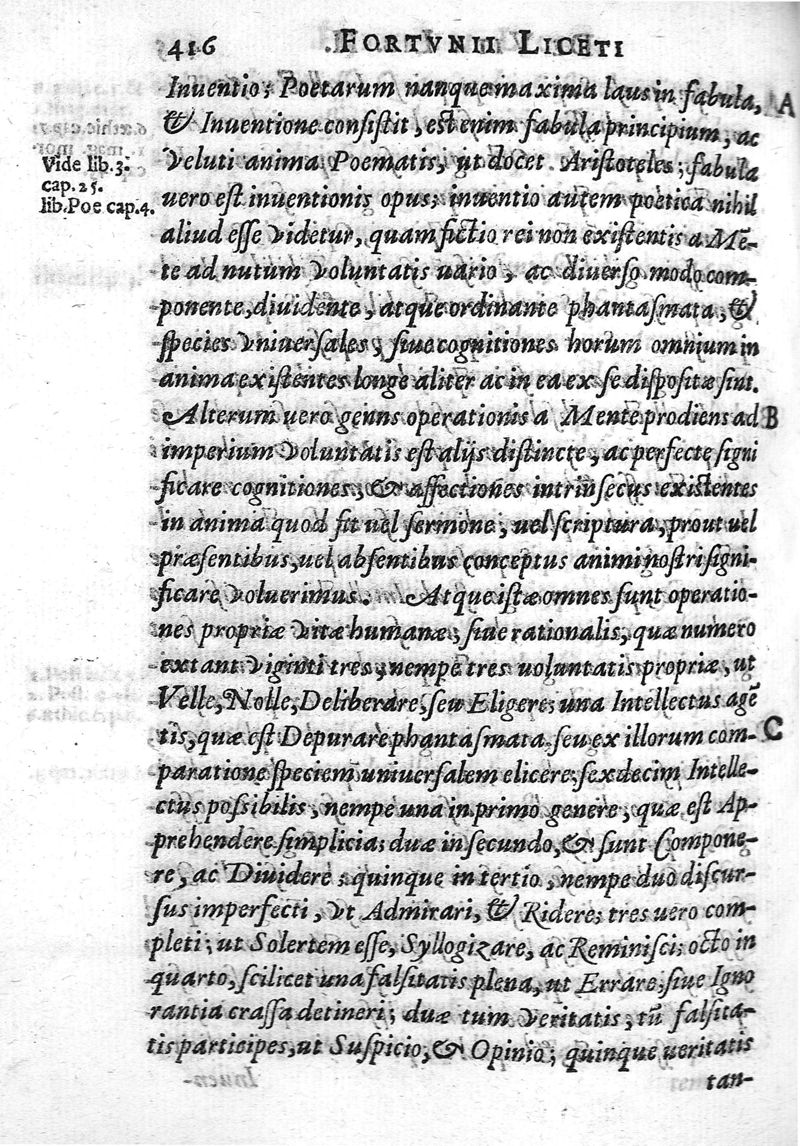 416 FORTVNII LICETI
Inuentio; Poetarum nanque maxima laus in fabula, A
& Inuentione consistit, est enim fabula principium, ac
veluti anima Poematis, ut docet Aristoteles; fabula
Vide lib.3.
cap.25.
lib.Poe cap.4.
uero est inuentionis opus; inuentio autem poetica nihil
aliud esse videtur, quam fictio rei non existentis a Mē-
te ad nutum voluntatis uario, ac diuerso modo com-
ponente, diuidente, atque ordinante phantasmata, &
species vniuersales, siue cognitiones horum omnium in
anima existentes longè aliter ac in ea ex se dispositæ sint.
Alterum uero genus operationis a Mente prodiens ad B
imperium voluntatis est alijs distincte, ac perfecte signi
ficare cognitiones, & affectiones intrinsecus existentes
in anima quod fit uel sermone, uel scriptura, prout uel
præsentibus, uel absentibus conceptus animi nostri signi-
ficare voluerimus. Atque istæ omnes sunt operatio-
nes propriæ vitæ humanæ, siue rationalis, quæ numero
extant viginti tres, nempe tres uoluntatis propriæ, ut
Velle, Nolle, Deliberare, seu Eligere; una Intellectus agē
tis, quæ est Depurare phantasmata, seu ex illorum com- C
paratione speciem uniuersalem elicere; sexdecim Intelle-
ctus possibilis, nempe una in primo genere, quæ est Ap-
prehendere simplicia; duæ in secundo, & sunt Compone-
re, ac Diuidere; quinque in tertio, nempe duo discur-
sus imperfecti, vt Admirari, & Ridere; tres uero com-
pleti, ut Solertem esse, Syllogizare, ac Reminisci; octo in
quarto, scilicet una falsitatis plena, ut Errare, siue Igno
rantia crassa detineri; duæ tum veritatis, tū falsita-
tis participes, ut Suspicio, & Opinio; quinque ueritatis
tan-